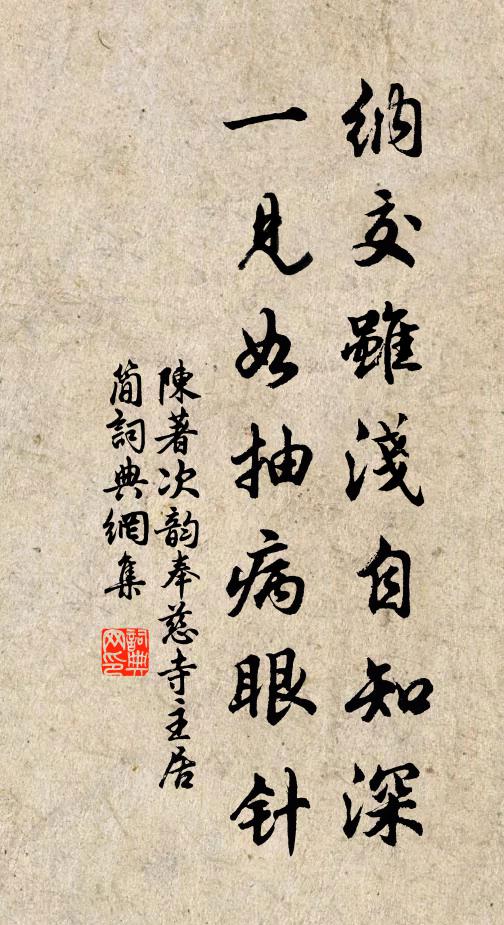 納交雖淺自知深
一見如抽病眼针
陳著次韵奉慈寺主居
簡詞典網集
詞典
网印